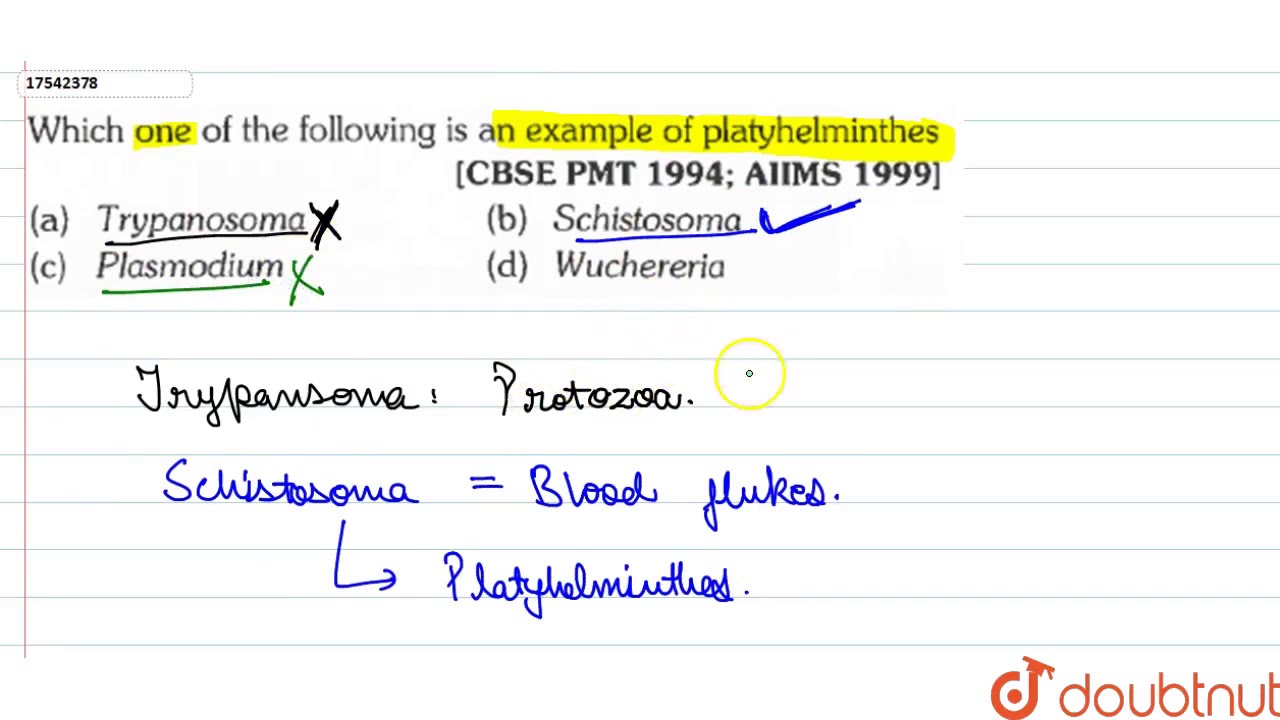 17542378
Which one of the following is an example of platyhelminthes
[CBSE PMT 1994; AIIMS 1999]
(a) Trypanosoma (b) Schistosoma
(c) Plasmodium (d) Wuchereria
Trypansoma: Protozoa.
Schistosoma = Blood flukes.
Platyhelminthes.
doubtnut